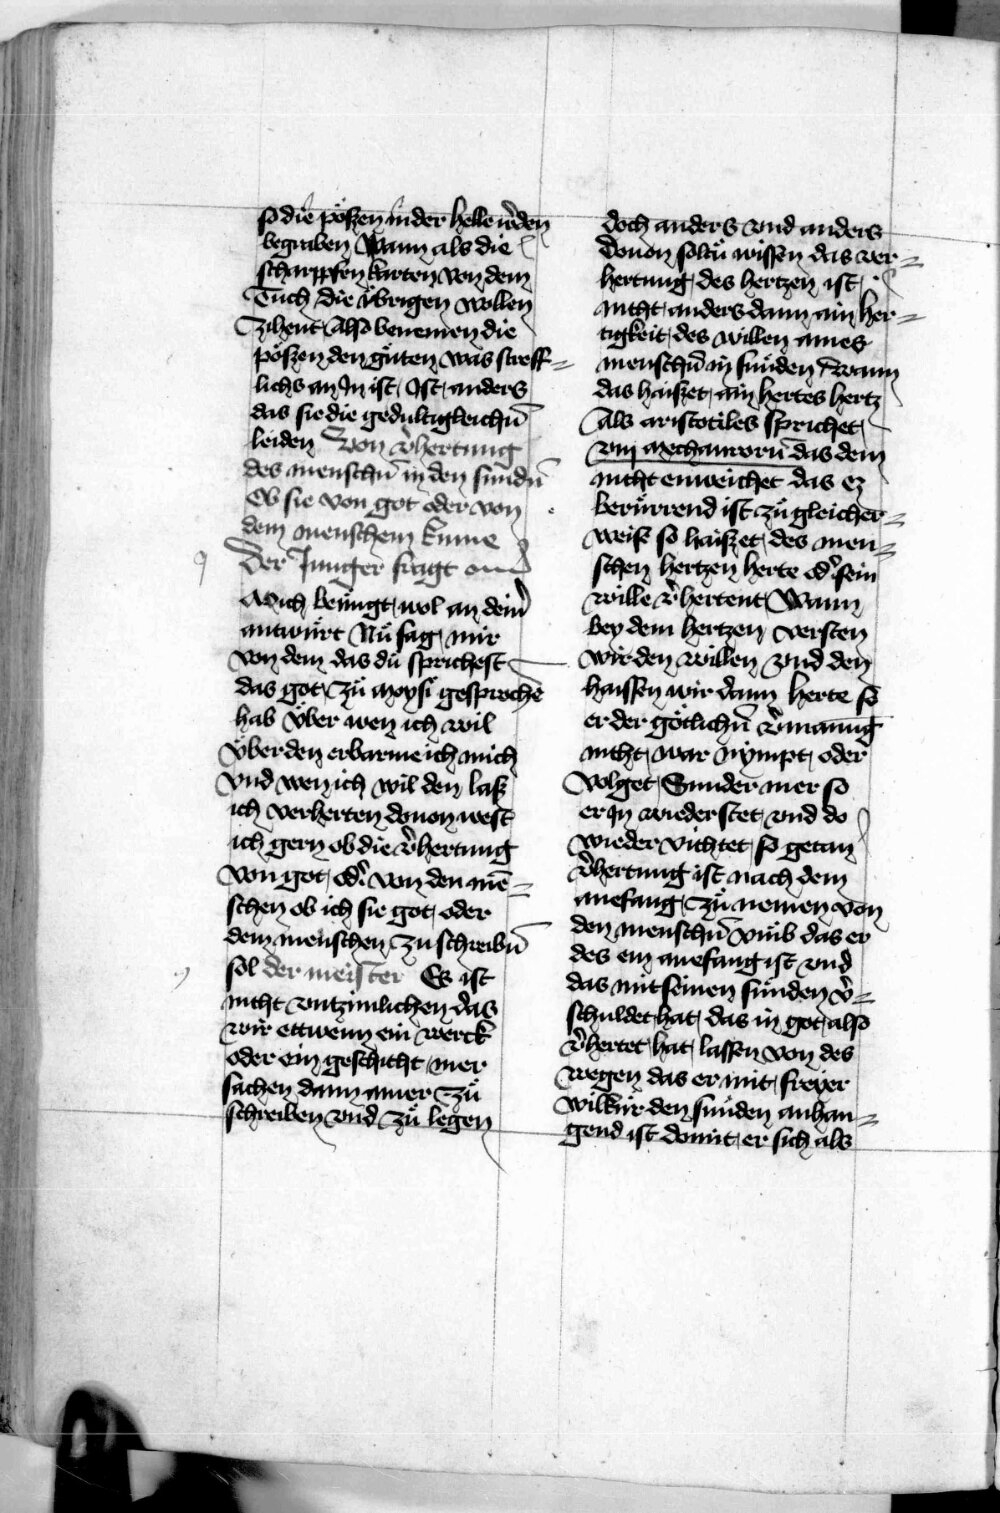 so die pößen in der helle w̉den
begraben Wann als die
scharppfen karten von dem
Tuch die übrigen wollen
Zihent Also benemen die
pößen den güten was streff=
lichs an In ist Ist anders
das sie die gedultigleichn̄
leiden Von v̉hertung
des menschn̄ in den sundn̄
Ob sie von got oder von
dem menschem kume
Der Junger fragt
Mich benügt wol an dein̉
antwürt Nü sag mir
von dem das dü sprichest
das got zü Moysi gesprochē
hab Über wen ich wil
über den erbarme ich mich
vnd wen ich wil den laß
ich verherten douon west
ich gern ob die v̉hertung
von got od̉ von den mē=
schen ob ich sie got oder
dem menschen zu schreibn̄
sol der meister Es ist
nicht vntzimlichen das
wir ettwenn ein werck
oder ein geschicht mer
sachen dann ainer zü
schreiben vnd zü legen
doch anders vnd anders
Douon soltu wissen das ver=
hertung des hertzen ist
nicht anders dann ain her=
tigkeit des willen aines
menschn̄ in sünden Wann
das haißet ain hertes hertz
Als aristotiles sprichet
das dem
nicht enweichet das ez
berürrend ist zü gleicher=
weis so haißet des men=
schen hertzen herte od̉ sein
wille v̉hertent Wann
bey dem hertzen versten
wir den willen vnd den
haissen wir dann herte so
er der götlichn̄ v̉manung
nicht war nympt oder
volget Sunder mer so
er In wiederstet vnd do
wieder vichtet so getan
v̉hertung ist nach dem
anefang zü nemen von
den menschn̄ vmb das er
des ein anefang ist vnd
das mit seinen sünden v̉=
schuldet hat das in got also
v̉hertet hat lassen von des
wegen das er mit freyer
wilkür den sünden anhan=
gend ist domit er sich als